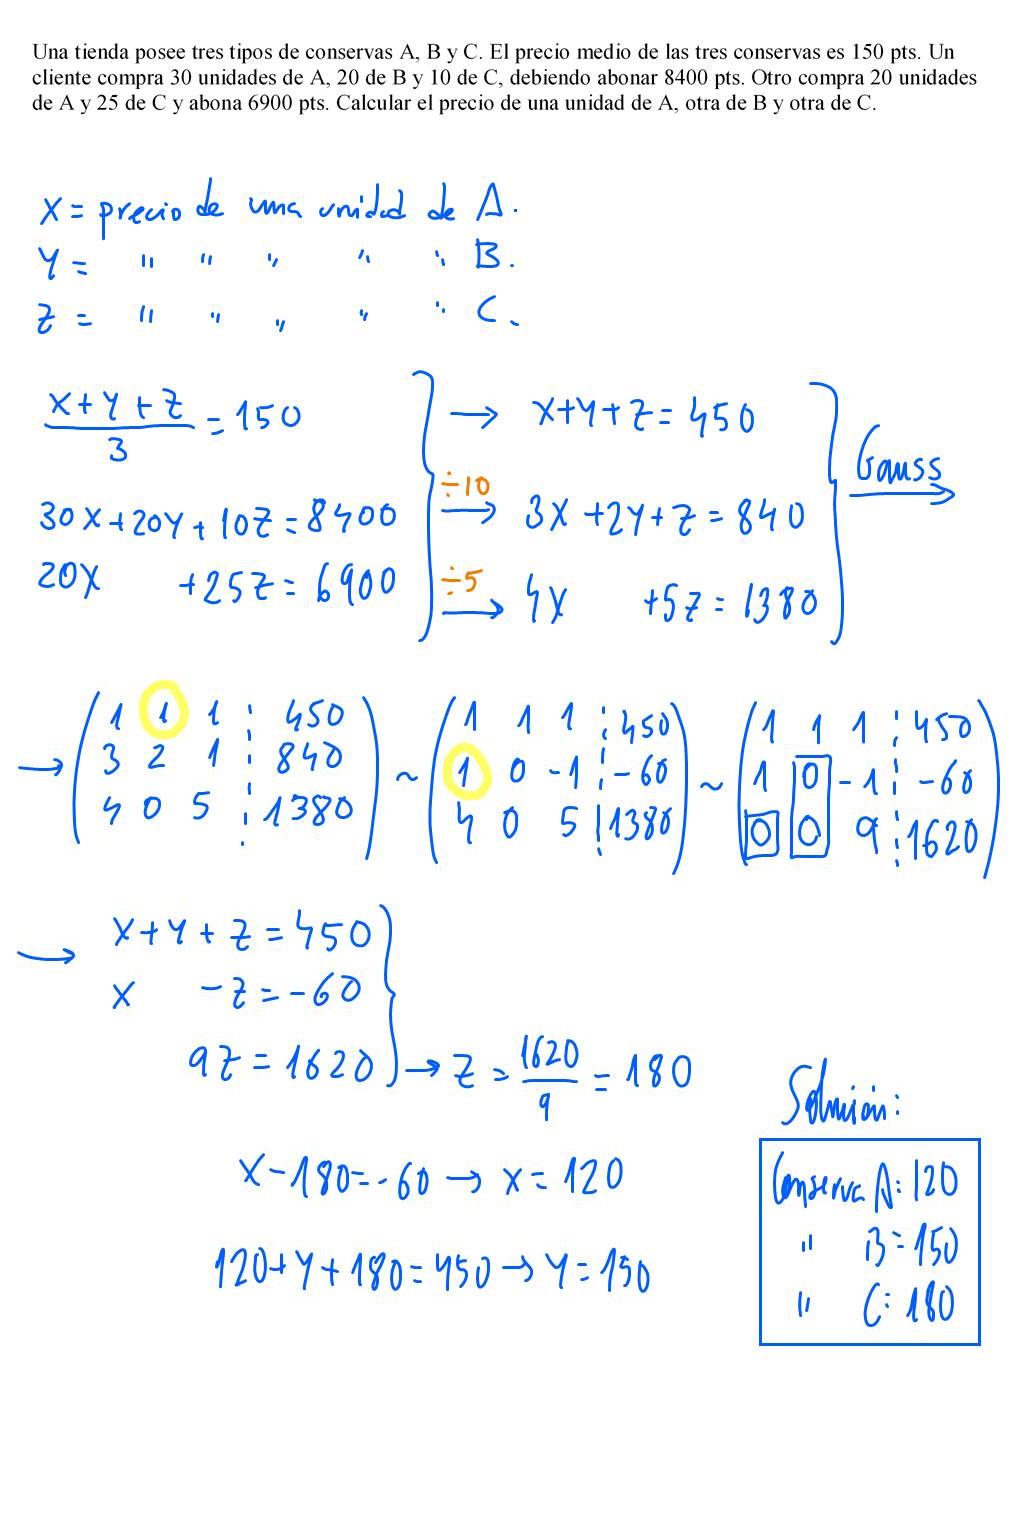 Una tienda posee tres tipos de conservas A, B y C. El precio medio de las tres conservas es 150 pts. Un
cliente compra 30 unidades de A, 20 de B y 10 de C, debiendo abonar 8400 pts. Otro compra 20 unidades
de A y 25 de C y abona 6900 pts. Calcular el precio de una unidad de A, otra de B y otra de C.
X = precio de una unidad de A.
Y = " " " " " B.
Z = " " " " " C.
(X+Y+Z)/3 = 150 → X+Y+Z = 450
30X+20Y+10Z = 8400 ÷10 → 3X+2Y+Z = 840 Gauss →
20X +25Z = 6900 ÷5 → 4X +5Z = 1380
→ (1 1 1 ⋮ 450) ~ (1 1 1 ⋮ 450) ~ (1 1 1 ⋮ 450)
(3 2 1 ⋮ 840) (1 0 -1 ⋮ -60) (1 0 -1 ⋮ -60)
(4 0 5 ⋮ 1380) (4 0 5 ⋮ 1380) (0 0 9 ⋮ 1620)
→ X+Y+Z = 450
X -Z = -60
9Z = 1620 → Z = 1620/9 = 180
Solución:
X-180=-60 → X = 120
120+Y+180=450 → Y=150
Conserva A: 120
" B = 150
" C: 180